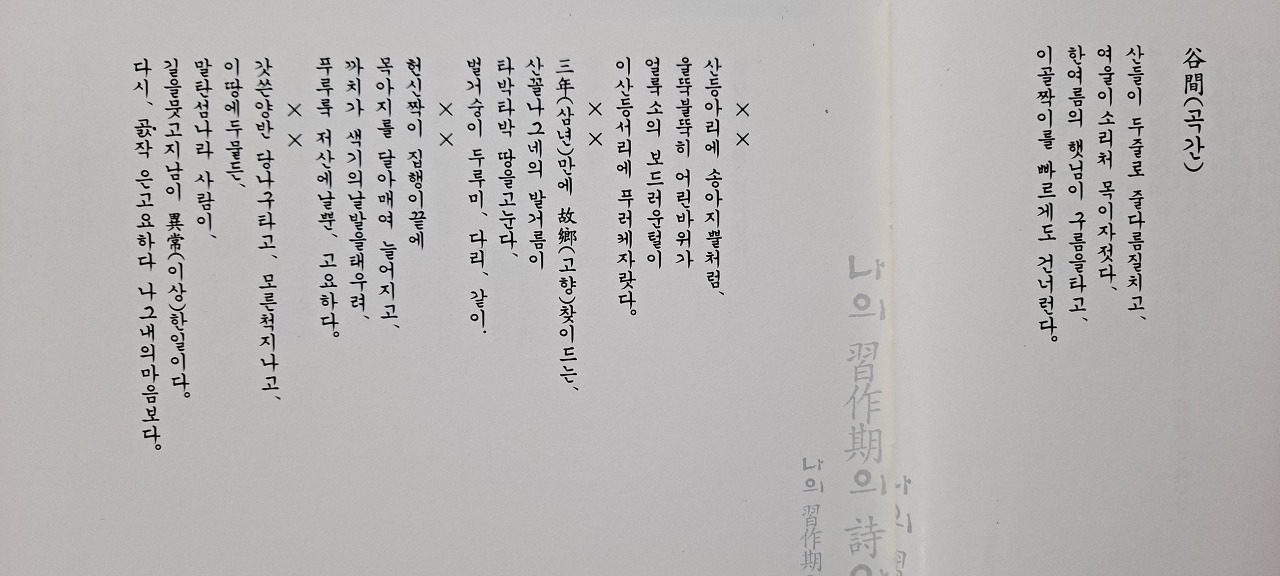 谷間(곡간)
산들이 두줄로 줄다름질치고、
여울이 소리처 목이자젓다、
한여름의 햇님이 구름을타고、
이골짝이를 빠르게도 건너런다。
나의 習作期의 詩
나의 習作期
나의
××
산등아리에 송아지뿔처럼、
울뚝불뚝히 어린바위가
얼룩소의 보드러운털이
이산등서리에 푸러케자랏다。
××
三年(삼년)만에 故鄕(고향)찾이드는、
산꼴나그네의 발거름이
타박타박 땅을고눈다、
벌거숭이 두루미、다리、같이!
××
헌신짝이 집행이끝에
목아지를 달아매여 늘어지고、
까치가 색기의날발을태우려、
푸루룩 저산에날뿐、고요하다。
××
갓쓴양반 당나구타고、모른척지나고、
이땅에두물든、
말탄섬나라 사람이、
길을뭇고지남이 異常(이상)한일이다。
다시、 은고요하다 나그내의마음보다。